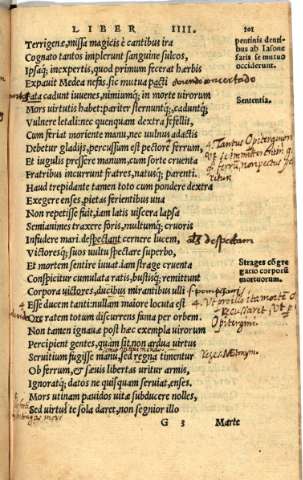 LIBER IIII.
101
Terrigena, missa magicis è cantibus ira
Cognato tantos implerunt sanguine sulcos,
Ipsaq; inexpertis, quod primum fecerat hærbis
Expauit Medea nefas. sic mutua pacti
Fata cadunt iuuenes, nimiumq; in morte uirorum
Mors uirtutis habet: pariter sternuntq;, caduntq;
Vulnere letali: nec quenquam dextra fefellit,
Cum feriat moriente manu, nec uulnus adactis
Debetur gladijs, percussum est pectore ferrum,
Et iugulis pressere manum, cum sorte cruenta
Fratribus incurrunt fratres, natusq; parenti.
Haud trepidante tamen toto cum pondere dextra
Exegere enses, pietas ferientibus una
Non repetisse fuit, iam latis uiscera lapsa
Semianimes traxere foris, multumq; cruoris
Infudere mari. despectant cernere lucem,
Victoresq; suos uultu spectare superbo,
Et mortem sentire iuuat. iam strage cruenta
Conspicitur cumulata ratis, bustisq; remittunt
Corpora uictores, ducibus mirantibus ulli
Esse ducem tanti: nullam maiore locuta est
Ore ratem totum discurrens fama per orbem.
Non tamen ignauæ post hæc exempla uirorum
Percipient gentes, quam sit non ardua uirtus
Seruitium fugisse manu, sed regna timentur
Ob ferrum, & sæuis libertas uritur armis,
Ignoratq; datos ne quisquam seruiat, enses.
Mors utinam pauidos uitæ subducere nolles,
Sed uirtus te sola daret, non segnior illo
G 3 Marte
pentinis denti-
bus ab Iasone
satis se mutuo
occiderunt.
Sententia.
Strages cō gre
gatio corporū
mortuorum.
als despectam